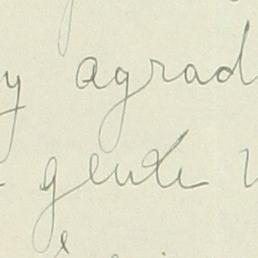 y agrad
gente